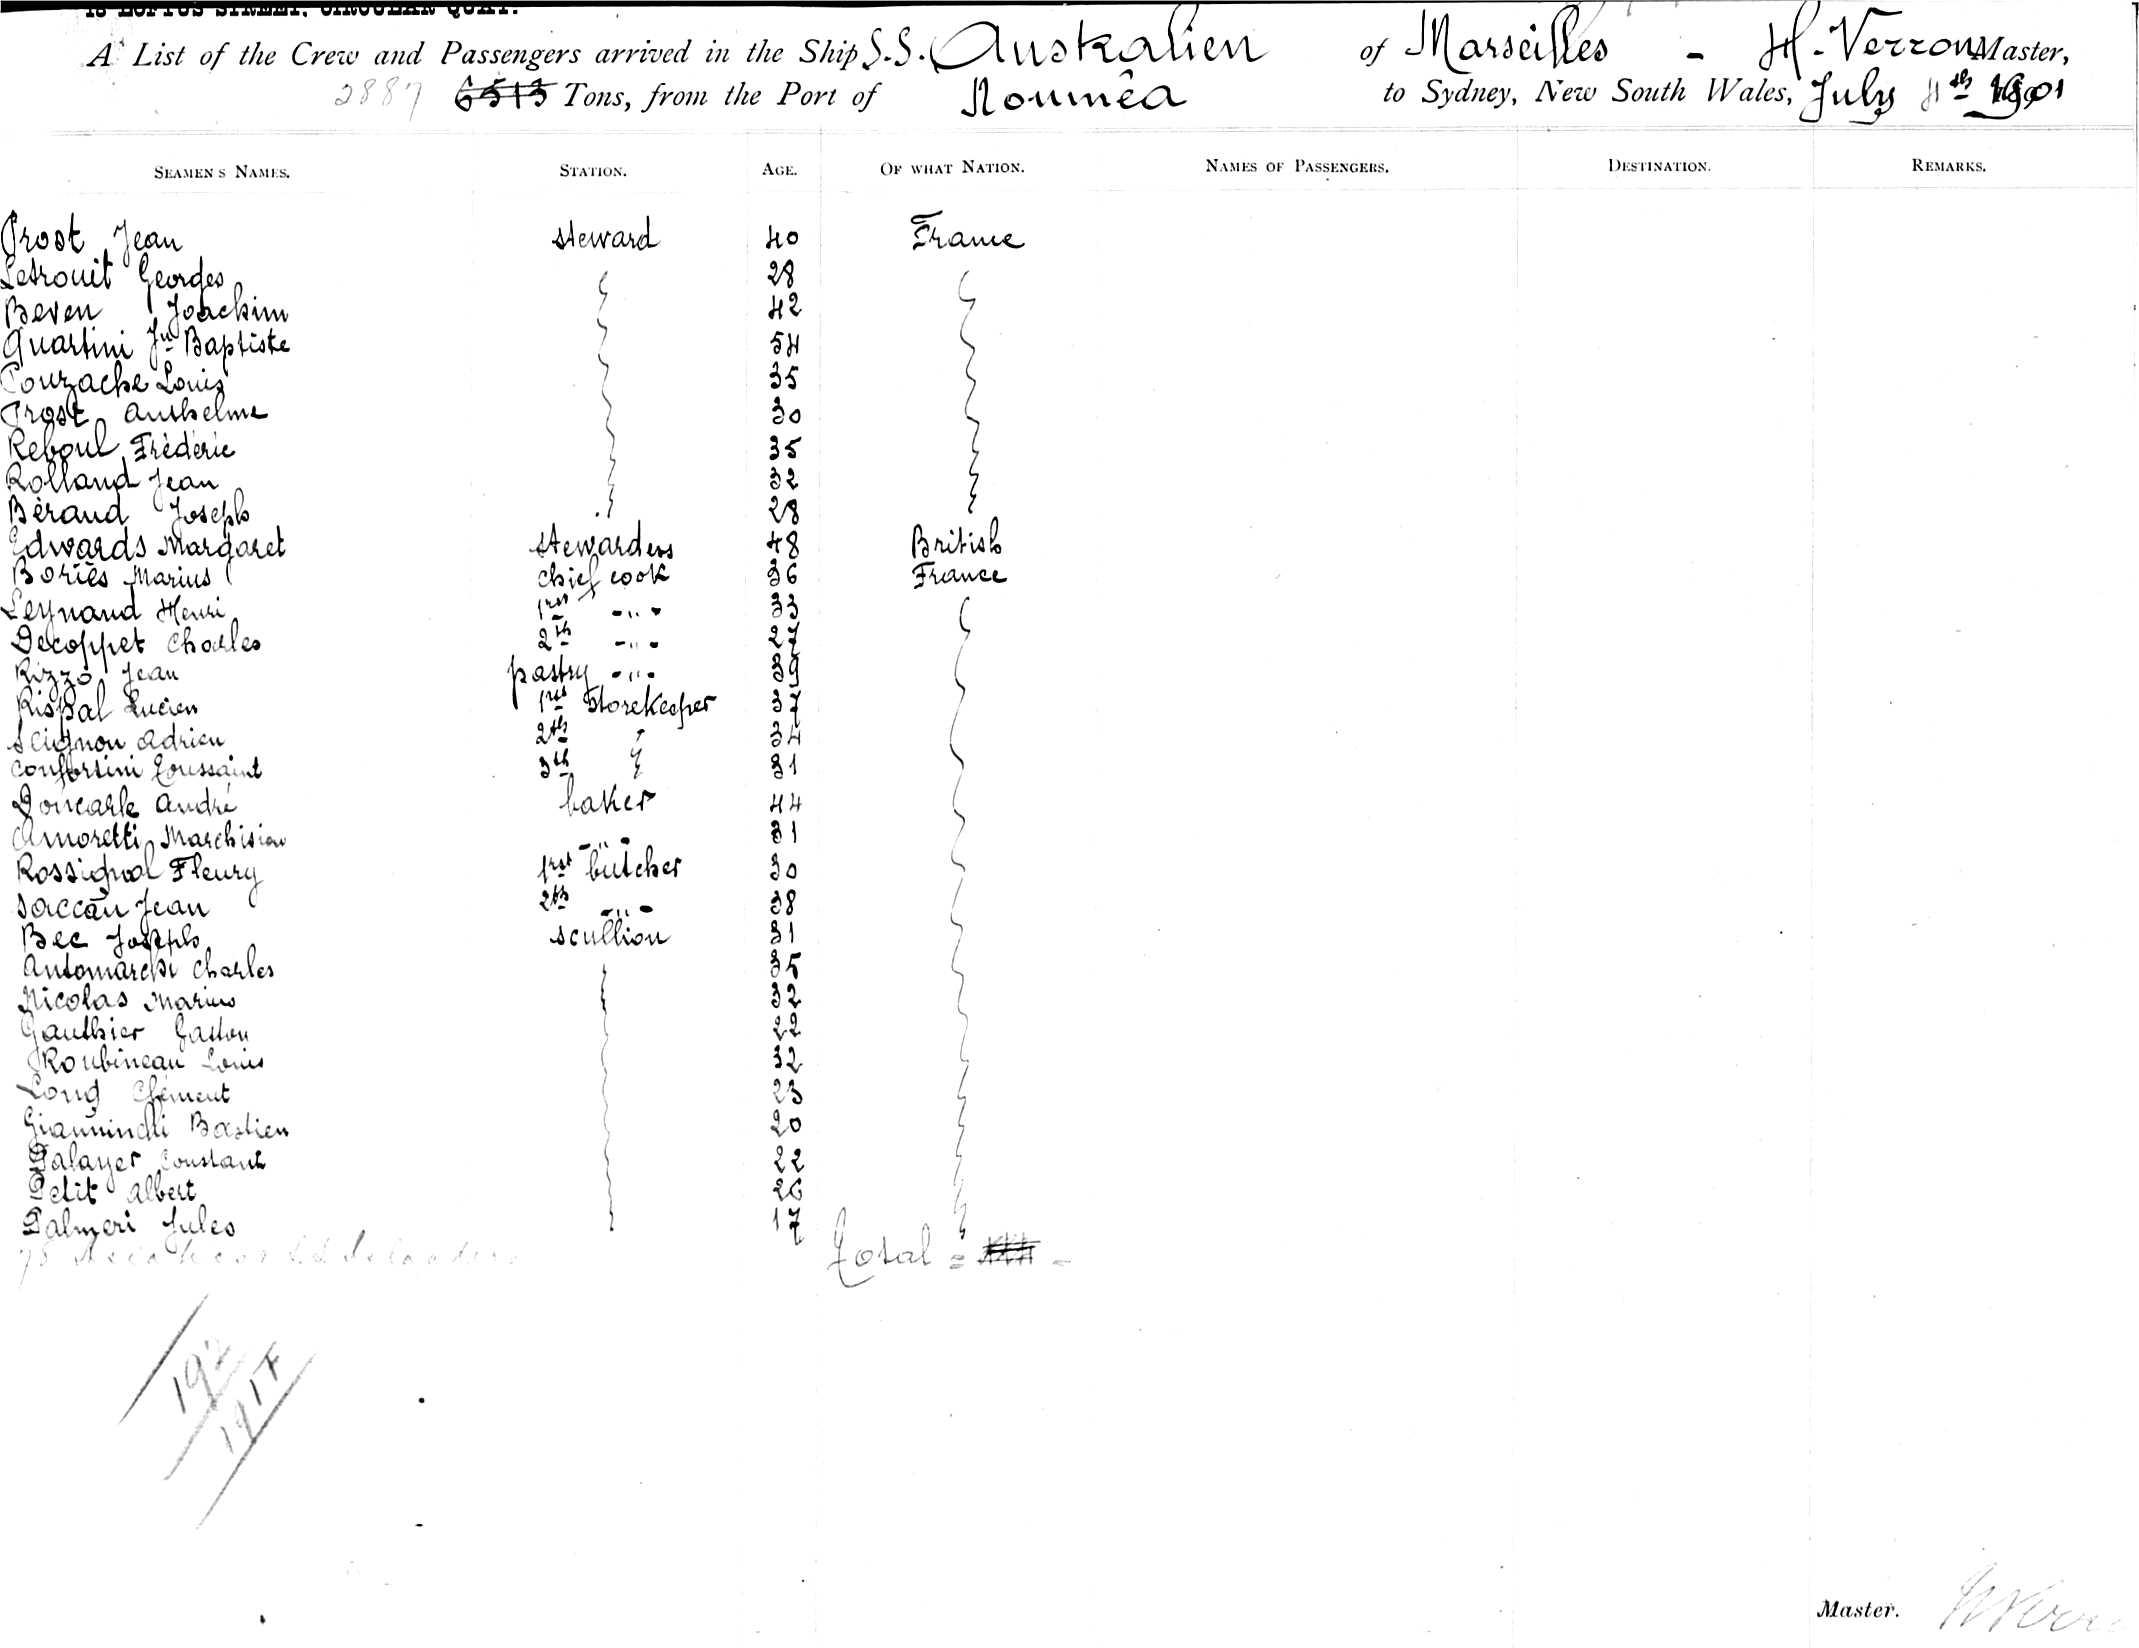 13 LOFTUS STREET, CIRCULAR QUAY.
A List of the Crew and Passengers arrived in the Ship S.S. Australien of Marseilles - H. Verron Master,
2887 6513 Tons, from the Port of Nouméa to Sydney, New South Wales, July 1901
SEAMENS NAMES. STATION. AGE. OF WHAT NATION. NAMES OF PASSENGERS. DESTINATION. REMARKS.
Prost Jean steward 40 France
Letrouit Georges 28
Beven Joachim 42
Quartini Jn Baptiste 54
Pourzache Louis 35
Prost Anthelme 30
Reboul Fréderic 35
Rolland Jean 32
Béraud Joseph 28
Edwards Margaret stewardess 48 British
Boriès Marius chief cook 36 France
Leynaud Henri 1rst -"- 33
Decoppet Charles 2th -"- 27
Rizzo Jean pastry -"- 39
Rispal Lucien 1rst Storekeeper 37
Seignon Adrien 2th 34
Confortini Toussaint 3th 31
Doncarle André baker 44
Amoretti -"- 31
Rossignol Fleury 1rst butcher 30
Saccau Jean 2th -"- 38
Bec Joseph scullion 31
Antomarchi Charles 35
Nicolas Marius 32
Gauthier Gaston 22
Roubineau Louis 32
Long Clément 23
Bastien 20
Palayer Constant 22
Petit Albert 26
Palmeri Jules 17
Total = -
192
Master.